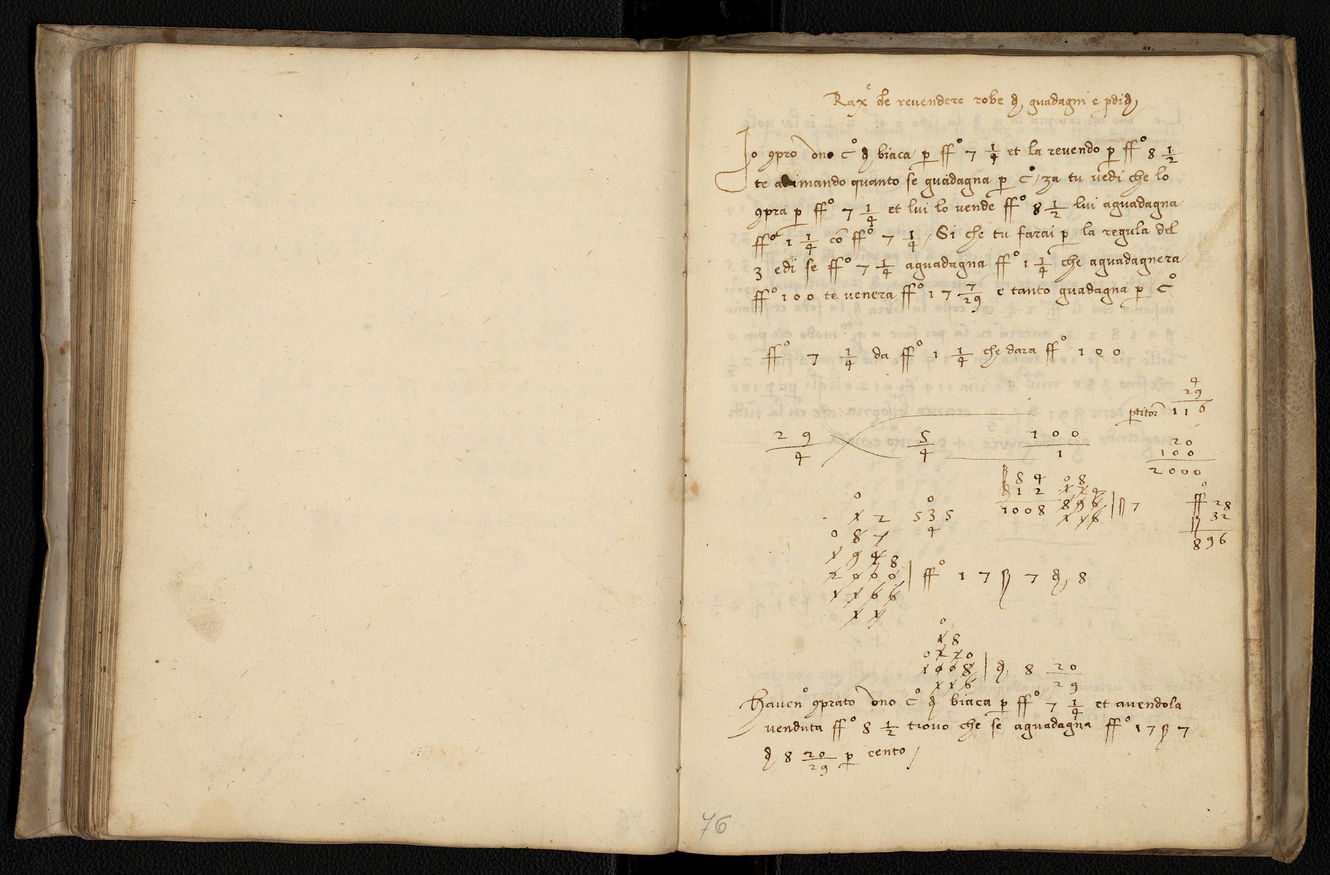 de revendere robe di guadagni e
Io 9pro uno cº di biaca p ffº 7 1/4 et la revendo p ffº 8 1/2
te adimando quanto se guadagna p cº / za tu vedi che lo
9pra p ffº 7 1/4 et lui lo vende ffº 8 1/2 lui aguadagna
ffº 1 1/4 cō ffº 7 1/4 / Si che tu farai p la regula del
3 edi se ffº 7 1/4 aguadagna ffº 1 1/4 che aguadagnera
ffº 100 te venera ffº 17 7/29 e tanto guadagna p cº
ffº 7 1/4 da ffº 1 1/4 che dara ffº 100
4
29
116
29/4 5/4 100/1
20
100
2000
84
12
1008
08
896
7
ffº 28
32
896
0
535
4
2000 | ffº 17 β 7 di 8
1008 | di 8 20/29
116
Haven 9prato uno cº di biaca p ffº 7 1/4 et avendola
venduta ffº 8 1/2 trovo che se aguadagna ffº 17 β 7
di 8 20/29 p cento /
76